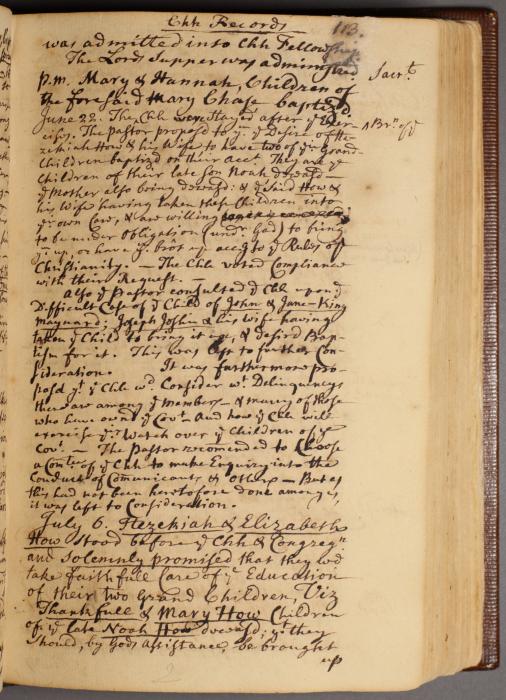 Chh Records
113.
was admitted into Chh Fellowship.
The Lords Supper was administred Sacrt.
p.m. Mary & Hannah, Children of
the foresaid Mary Chase baptizd.
June 22. The Chh were stayed after ye Exer-
cises. The Pastor proposd to ym ye Desire of He- ^ Brn of ye
zekiah How & his Wife to have two of yir Grand-
Children baptizd on their acct. They are ye
Children of their late son Noah deceasd —
ye Mother also being deceasd: & ye said How &
his Wife having taken these Children into
yir own Care, & are willing
to be under Obligation (undr God) to bring
ym up, or have ym brot up accg to ye Rules of
Christianity. — The Chh voted Compliance
with their Request. —
Also ye Pastor consulted ye Chh upon ye
Difficult Case of ye Child of John & Jane King
Maynard; Joseph Joslin & his wife having
taken ye Child to bring it up, & desird Bap-
tism for it. This was left to further Con-
sideration. It was furthermore pro-
posd yt ye Chh wd Consider wt Delinquencys
there are among ye members — & many of those
who have ownd ye Covt — And how ye Chh will
exercise yir Watch over ye Children of ye
Covt. — The Pastor recomended to Choose
a Comtee of ye Chh to make Enquiry into the
Conduct of Comunicants & Others — But as
this had not been heretofore done among us,
it was left to Consideration.
July 6. Hezekiah & Elizabeth
How stood before ye Chh & Congregn
and solemnly promised that they wd
take faithfull Care of ye Education
of their two Grand Children, Viz
Thankfull & Mary How Children
of ye late Noah How deceasd; yt they
should, by Gods assistance, be brought
up